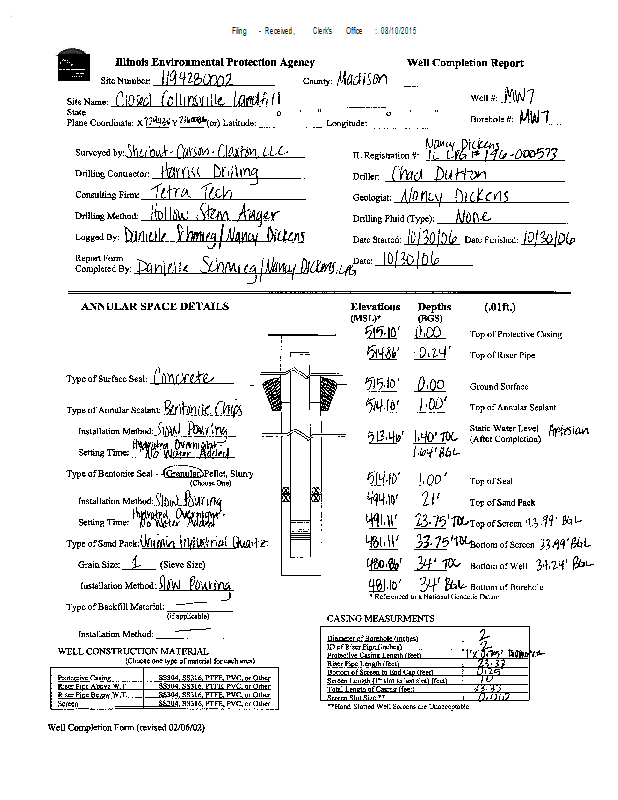 Filing - Received, Clerk's Office : 08/10/2015
Illinois Environmental Protection Agency Well Completion Report
Site Number: 1194280002 County: Madison
Site Name: Closed Collinsville Landfill Well #: MW7
State
Plane Coordinate: X Y (or) Latitude: Longitude: Borehole #: MW7
Surveyed by: Sherbut-Carson-Claxton, LLC. IL Registration #: Nancy Dickens IL LPG # 196-000573
Drilling Contractor: Harriss Drilling Driller: Chad Dutton
Consulting Firm: Tetra Tech Geologist: Nancy Dickens
Drilling Method: Hollow Stem Auger Drilling Fluid (Type): None
Logged By: Danielle Schmieg/Nancy Dickens Date Started: 10/30/06 Date Finished: 10/30/06
Report Form
Completed By: Danielle Schmieg/Nancy Dickens, LPG Date: 10/30/06
ANNULAR SPACE DETAILS Elevations Depths (.01ft.)
(MSL)* (BGS)
515.10' 0.00 Top of Protective Casing
514.86' 0.24' Top of Riser Pipe
Type of Surface Seal: Concrete 515.10' 0.00 Ground Surface
Type of Annular Sealant: Bentonite Chips 514.10' 1.00' Top of Annular Sealant
Installation Method: Slow Pouring 513.46' 1.40' TOC Static Water Level Artesian
(After Completion)
Setting Time: Hydrated Overnight - No Water Added 1.64' BGL
Type of Bentonite Seal - Granular, Pellet, Slurry 514.10' 1.00' Top of Seal
(Choose One)
Installation Method: Slow Pouring 494.10' 21' Top of Sand Pack
Setting Time: Hydrated Overnight - No Water Added 491.11' 23.75' TOC Top of Screen 23.99' BGL
Type of Sand Pack: Unimin Industrial Quartz 481.11' 33.75' TOC Bottom of Screen 33.99' BGL
Grain Size: 1 (Sieve Size) 480.86' 34' TOC Bottom of Well 34.24' BGL
Installation Method: Slow Pouring 481.10' 34' BGL Bottom of Borehole
* Referenced to a National Geodetic Datum
Type of Backfill Material:
(if applicable)
Installation Method:
CASING MEASURMENTS
Diameter of Borehole (inches)
ID of Riser Pipe (inches) 2
Protective Casing Length (feet)
Riser Pipe Length (feet) 23.37
Bottom of Screen to End Cap (feet) 0.25
Screen Length (1st slot to last slot) (feet) 10
Total Length of Casing (feet)
Screen Slot Size **
**Hand-Slotted Well Screens are Unacceptable
WELL CONSTRUCTION MATERIAL
(Choose one type of material for each area)
Protective Casing SS304, SS316, PTFE, PVC, or Other
Riser Pipe Above W.T. SS304, SS316, PTFE, PVC, or Other
Riser Pipe Below W.T. SS304, SS316, PTFE, PVC, or Other
Screen SS304, SS316, PTFE, PVC, or Other
Well Completion Form (revised 02/06/02)